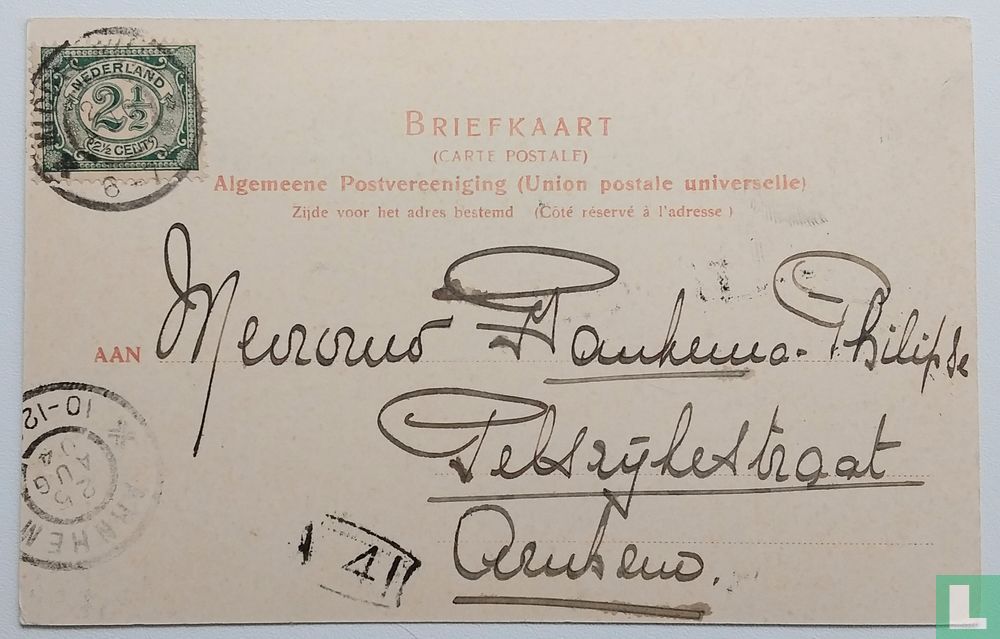 NEDERLAND
2½
2½ CENT
BRIEFKAART
(CARTE POSTALE)
Algemeene Postvereeniging (Union postale universelle)
Zijde voor het adres bestemd (Côté réservé à l'adresse)
AAN Mevrouw Haukema-Philipse
Pelsrijkestraat
Arnhem.
ARNHEM
25 AUG 04
10-12
41
L